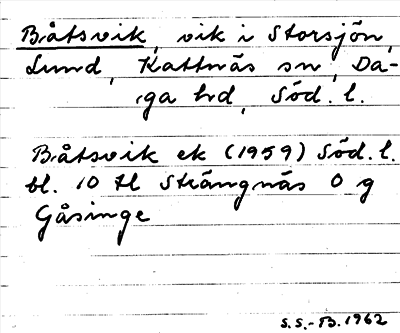 Båtsvik, vik i Storsjön,
Lund, Kattnäs sn, Da-
ga hd, Söd. l.
Båtsvik ek (1959) Söd. l.
bl. 10 tl Strängnäs O g
Gåsinge
S.S.-B. 1962